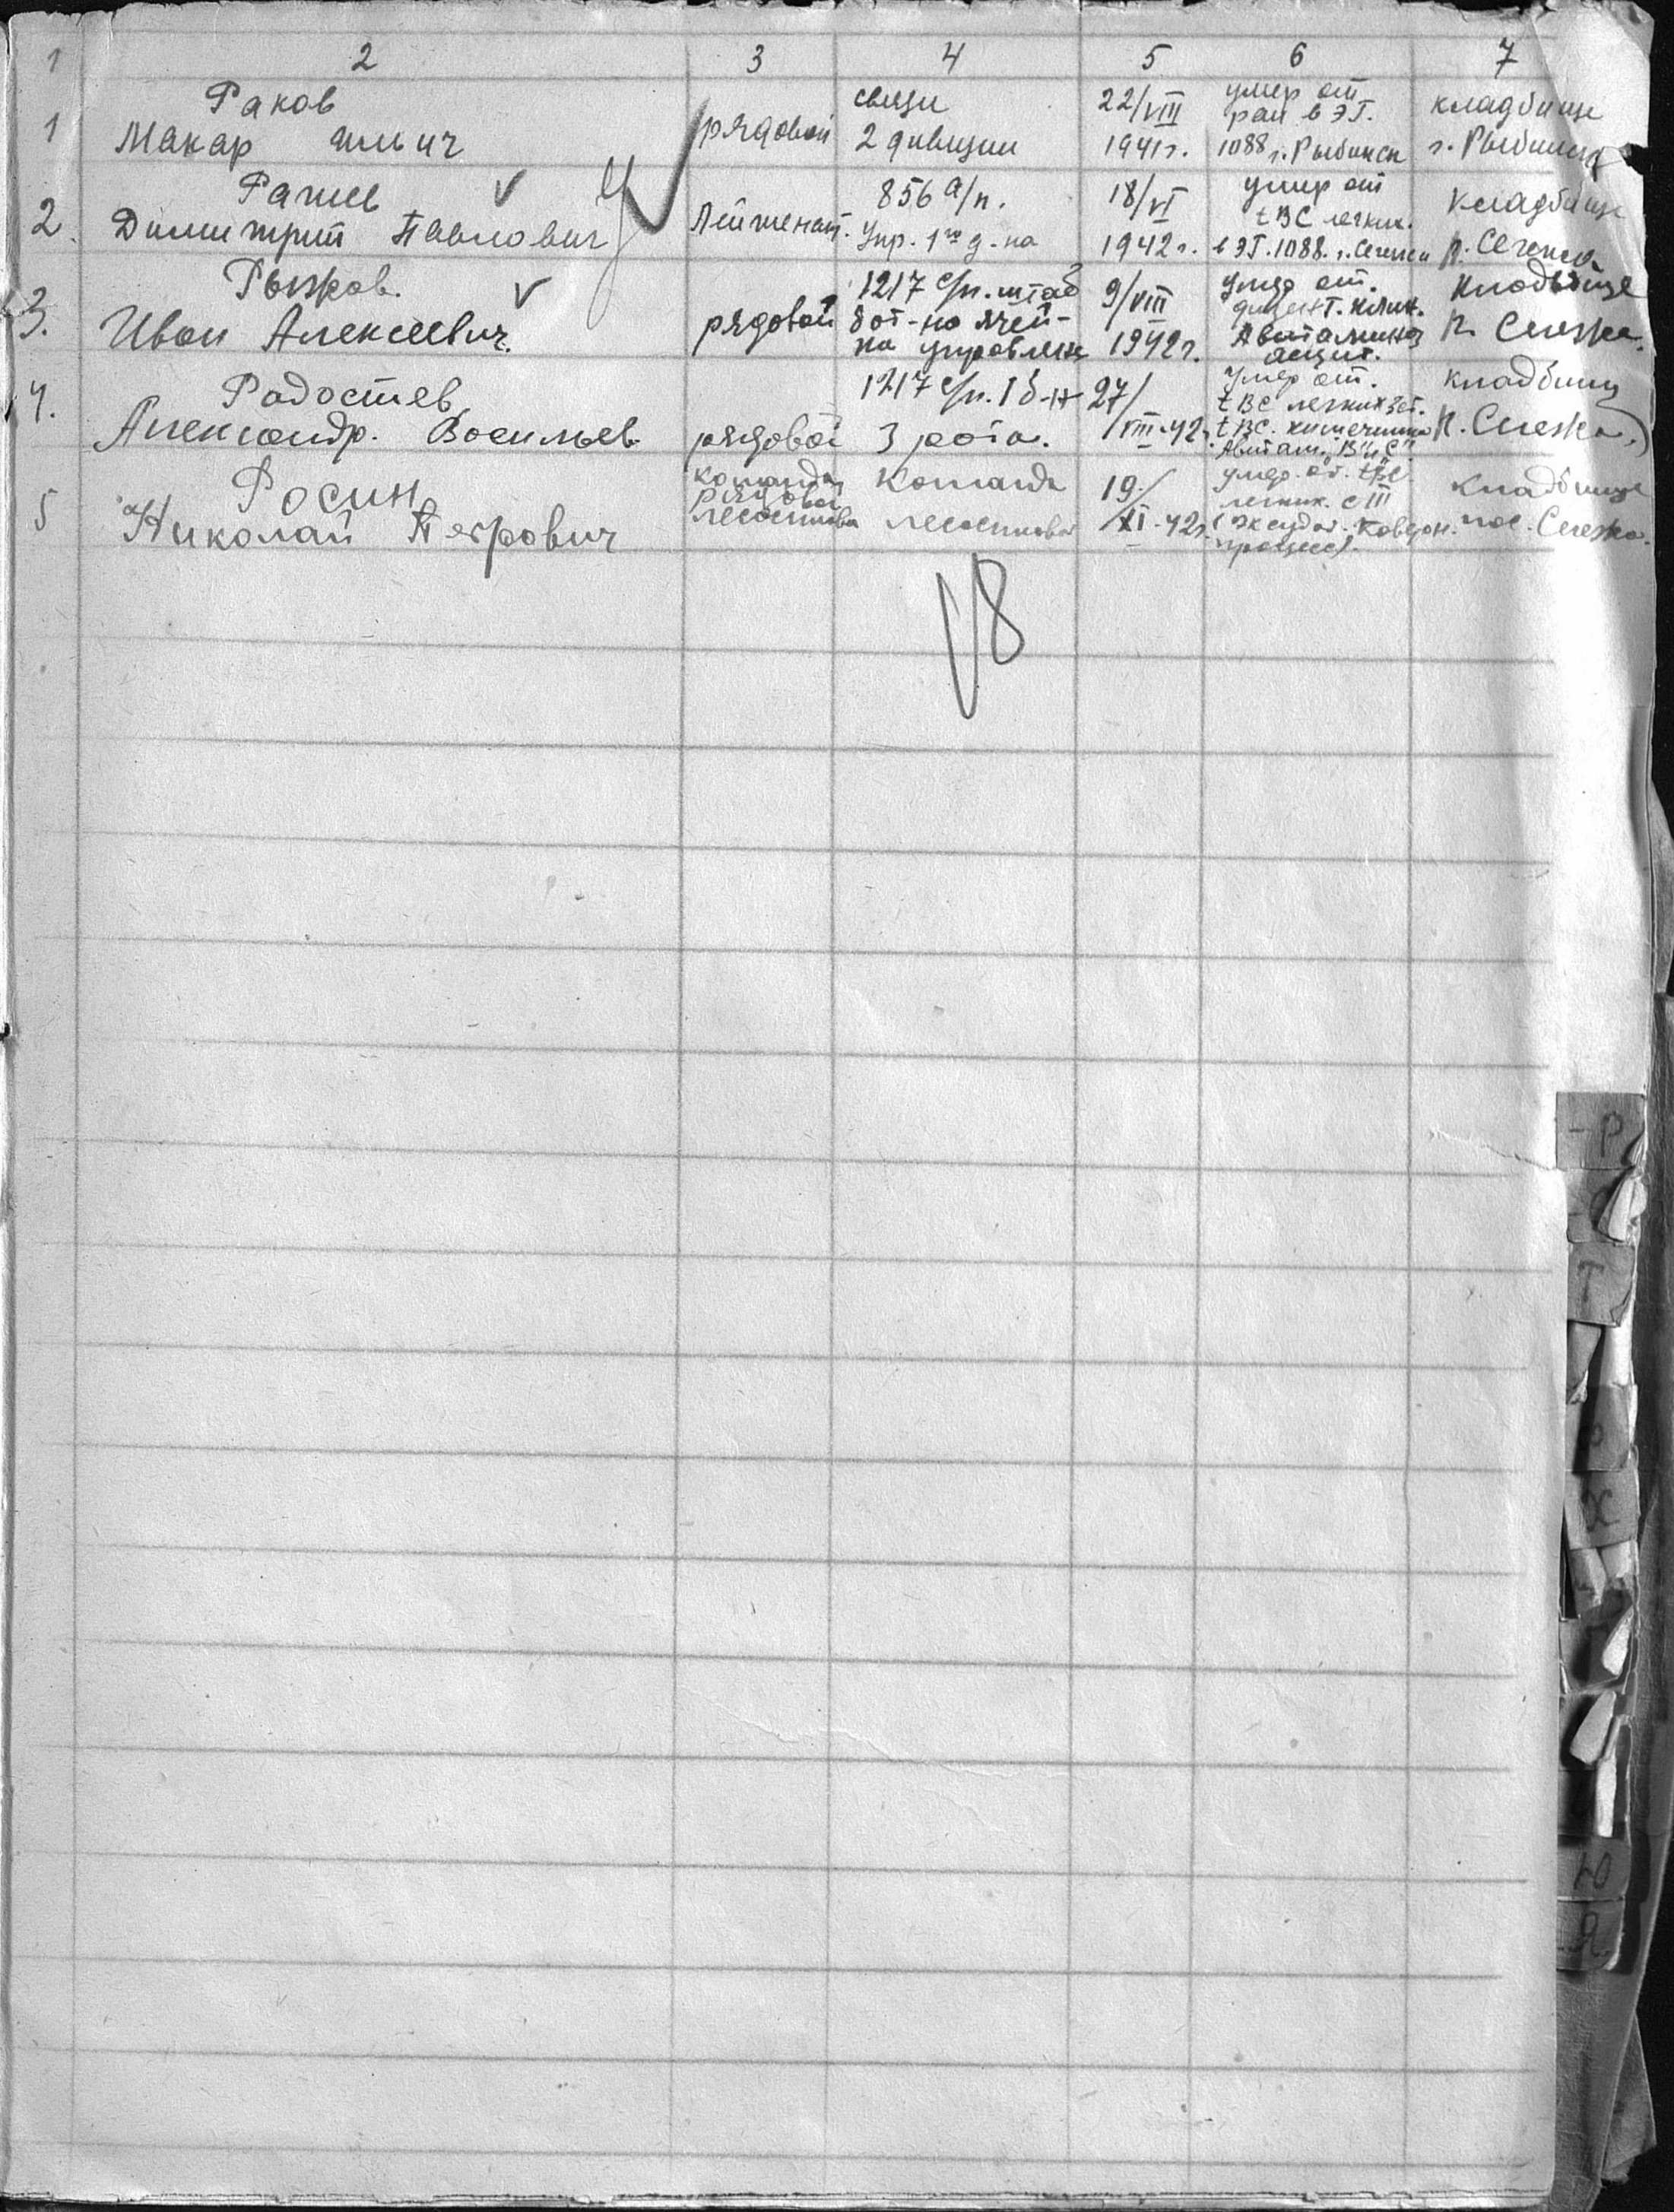 1 2 3 4 5 6 7
1 Раков Макар Ильич рядовой связи 2 дивизии 22/VIII 1941г. умер от ран в ЭГ. 1088 г. Рыбинск кладбище г. Рыбинск
2. Димитрий Павлович Лейтенант. 856 а/п. Упр. 1го д-на 18/VI 1942г. умер от tBC легких. в ЭГ. 1088. кладбище п. Сегежа
3. Рыжков. Иван Алексеевич. рядовой 1217 с/п. штаб бат-на управлен 9/VIII 1942г. умер от. Авитаминоз асцит. кладбище п. Сегежа.
4. Радостев Александр. Васильев рядовой 1217 с/п. I б-н 3 рота. 27/VIII-42г. умер от. tBC легких tBC. кишечника Авитам. "В" и "С" кладбищ п. Сегежа
5 Росин Николай Петрович рядовой Команда 19/XI-42г. умер. от. tBC легких. с III процесс). кладбище пос. Сегежа.
V8
-Р
Т
Х
Ю
Я